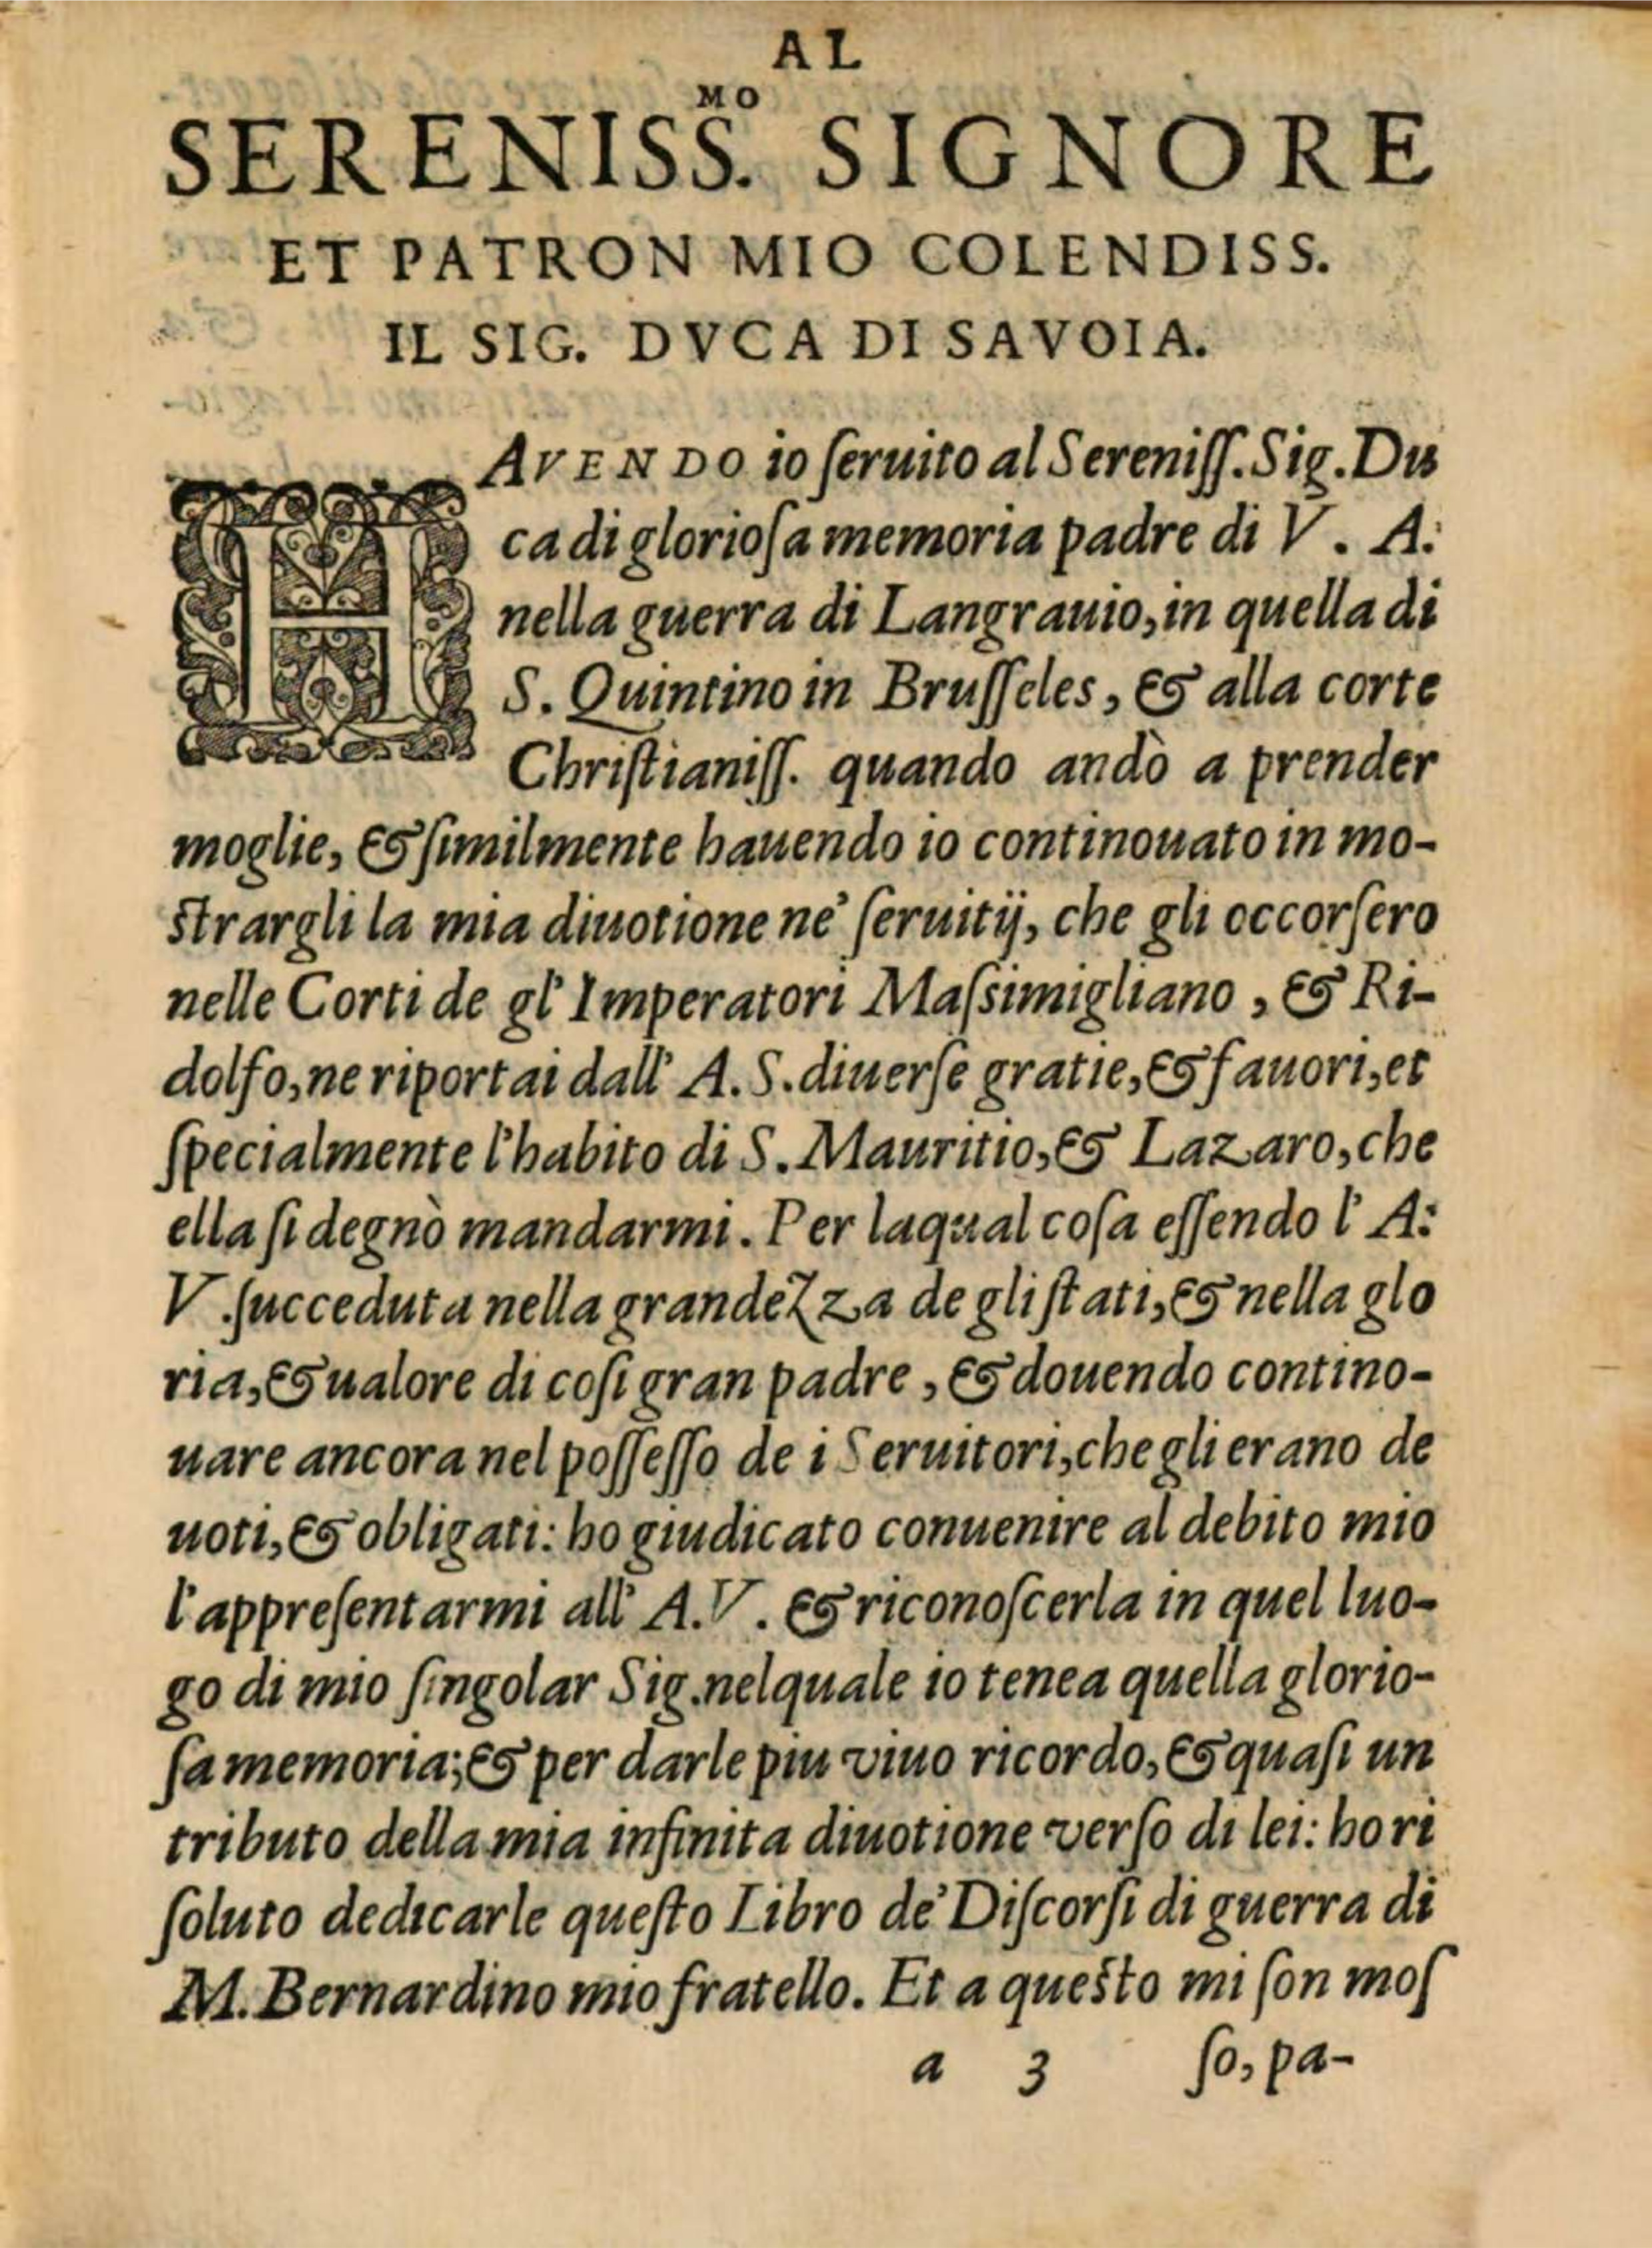 AL
SERENISS.ᴹᴼ SIGNORE
ET PATRON MIO COLENDISS.
IL SIG. DVCA DI SAVOIA.
HAVENDO io ſeruito al Sereniſſ. Sig. Du
ca di glorioſa memoria padre di V. A.
nella guerra di Langrauio, in quella di
S. Quintino in Bruſſeles, & alla corte
Chriſtianiſſ. quando andò a prender
moglie, & ſimilmente hauendo io continouato in mo-
ſtrargli la mia diuotione ne' ſeruitij, che gli occorſero
nelle Corti de gl' Imperatori Maſsimigliano, & Ri-
dolfo, ne riportai dall' A. S. diuerſe gratie, & fauori, et
ſpecialmente l'habito di S. Mauritio, & Lazaro, che
ella ſi degnò mandarmi. Per laqual coſa eſſendo l' A.
V. ſucceduta nella grandezza de gli ſtati, & nella glo
ria, & ualore di coſi gran padre, & douendo contino-
uare ancora nel poſſeſſo de i Seruitori, che gli erano de
uoti, & obligati: ho giudicato conuenire al debito mio
l'appreſentarmi all' A. V. & riconoſcerla in quel luo-
go di mio ſingolar Sig. nelquale io tenea quella glorio-
ſa memoria; & per darle piu viuo ricordo, & quaſi un
tributo della mia infinita diuotione verſo di lei: ho ri
ſoluto dedicarle queſto Libro de' Diſcorſi di guerra di
M. Bernardino mio fratello. Et a queſto mi ſon moſ
a 3 ſo, pa-